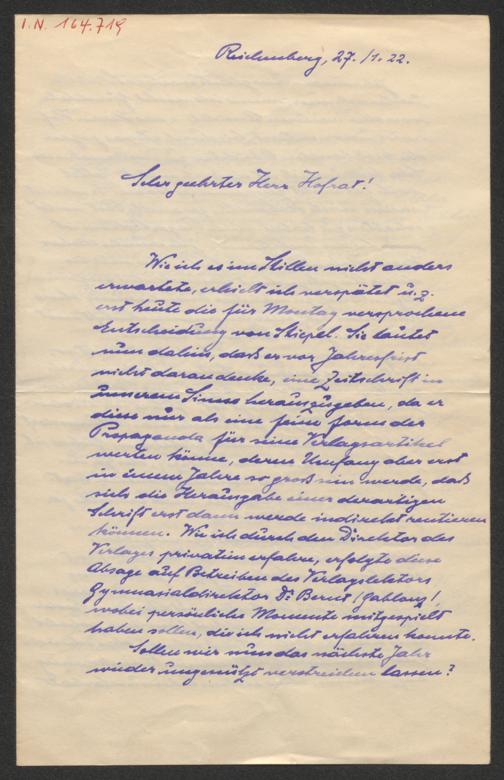 I.N. 164.719
Reichenberg, 27./1.22.
Sehr geehrter Herr Hofrat!
Wie ich es im Stillen nicht anders
erwartete, erhielt ich verspätet u.z.
erst heute die für Montag versprochene
Entscheidung von Stiepel. Sie lautet
nun dahin, daß er vor Jahresfrist
nicht daran denke, eine Zeitschrift in
unserem Sinne herauszugeben, da er
diese nur als eine feine Form der
Propaganda für seine Verlagsartikel
werten könne, deren Umfang aber erst
in einem Jahre so groß sein werde, daß
sich die Herausgabe einer derartigen
Schrift erst dann werde indirekt rentieren
können. Wie ich durch den Direktor des
Verlages privatim erfahre, erfolgte diese
Absage auf Betreiben des Verlagslektors
Gymnasialdirektor Dr Bernt (Gablonz),
wobei persönliche Momente mitgespielt
haben sollen, die ich nicht erfahren konnte.
Sollen wir nun das nächste Jahr
wieder ungenützt verstreichen lassen?